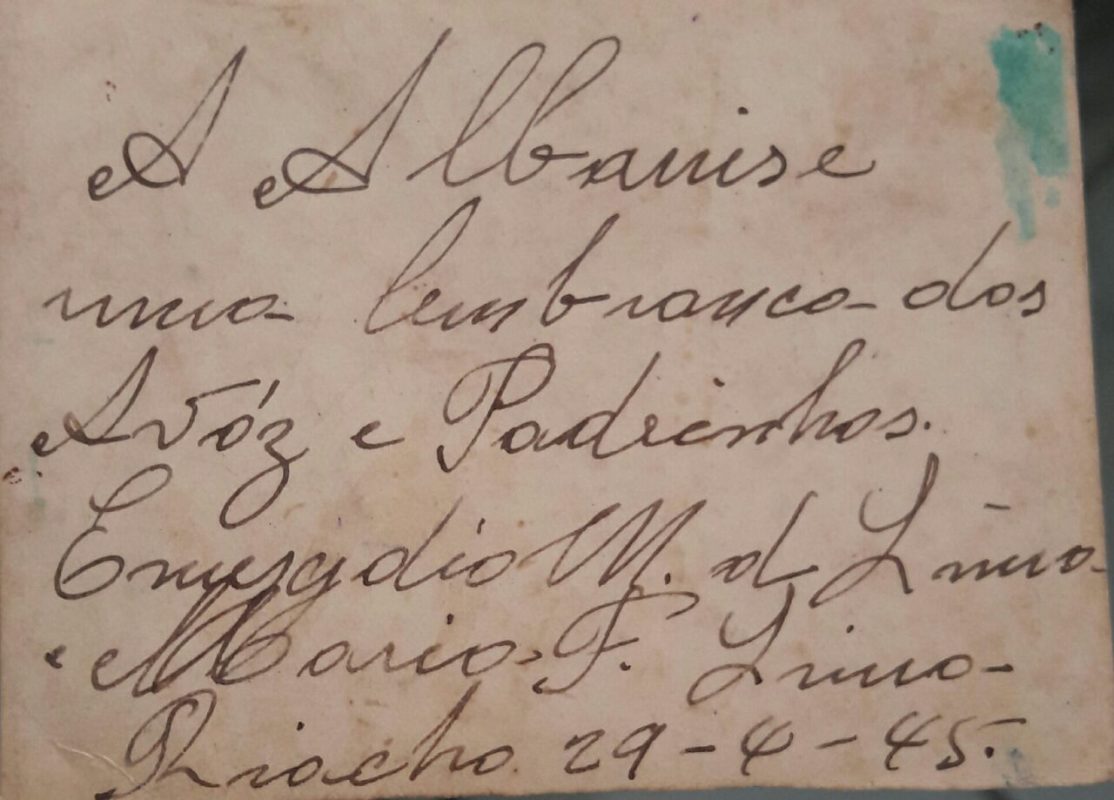 A Albanise
uma lembranca dos
Avóz e Padrinhos.
Emygdio M. d Lima
e Maria F. Lima
Riacho 29-4-45.